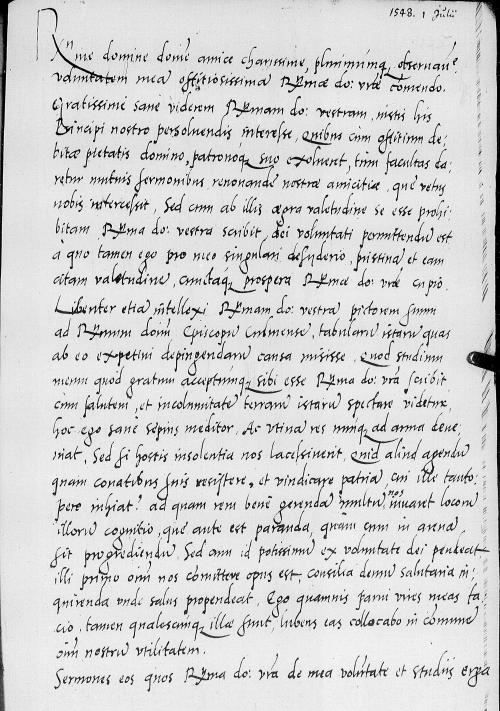 1548. 1 Julii
Rme domine domine amice charissime, plurimumq, observande.
voluntatem meam offitiosissimam Rmæ do: vræ comendo.
Gratissime sane viderem Rmam do: vestram, iustis his
Principi nostro persolvendis interesse, quibus cum offitium de:
bitæ pietatis domino, patronoq, suo exolveret, tum facultas da:
retur mutuis sermonibus, renovandæ nostræ amicitiæ, quæ vetus
nobis intercessit, Sed cum ab illis ægra valetudine se esse prohi:
bitam Rma do: vestra scribit, dei voluntati permittendum est
à quo tamen ego pro meo singulari desyderio, pristinam et eam
citam valetudinem, cunctaq, prospera Rmæ do: vræ cupio.
Libenter etiam intellexi Rmam do: vestram pictorem suum
ad Rmum dnm Episcopum Culmensem, tabularum istarum quas
ab eo expetivi depingendarum causa misisse. quod studium
meum quod gratum acceptumq, sibi esse Rma do: vra scribit
cum salutem, et incolumitatem terrarum istarum spectare videtur,
hoc ego sane sepius meditor. Ac utina res nunq, ad arma deve:
niat, Sed si hostis insolentia nos lacessiverit, quid aliud agendum
quam conatibus suis resistere, et vindicare patriam, cui ille tanto:
pere inhiat? ad quam rem bene gerendam multum nos iuvaret locorum
illorum cognitio, quæ ante est paranda, quam cum in arenam
sit progrediendum, Sed cum id potissimum ex voluntate dei pendeat
illi primo oīm nos comittere opus est, consilia demum salutaria in:
quirenda unde salus propendeat. Ego quamvis parvi vires meas fa:
cio, tamen qualescunq, illæ sunt, lubens eas collocabo in comunem
oīm nostrum utilitatem.
Sermones eos quos Rma do: vra de mea voluntate et studiis erga